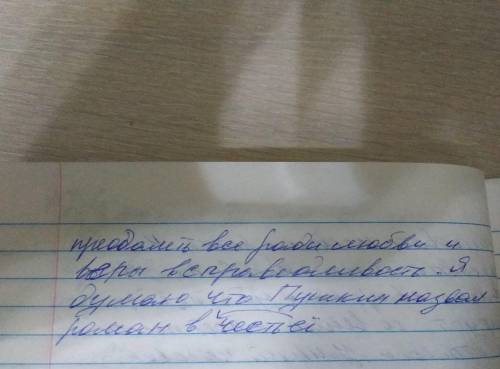 преодолеть все ради любви и
веры в справедливость. Я
думаю что Пушкин назвал
роман в честь её